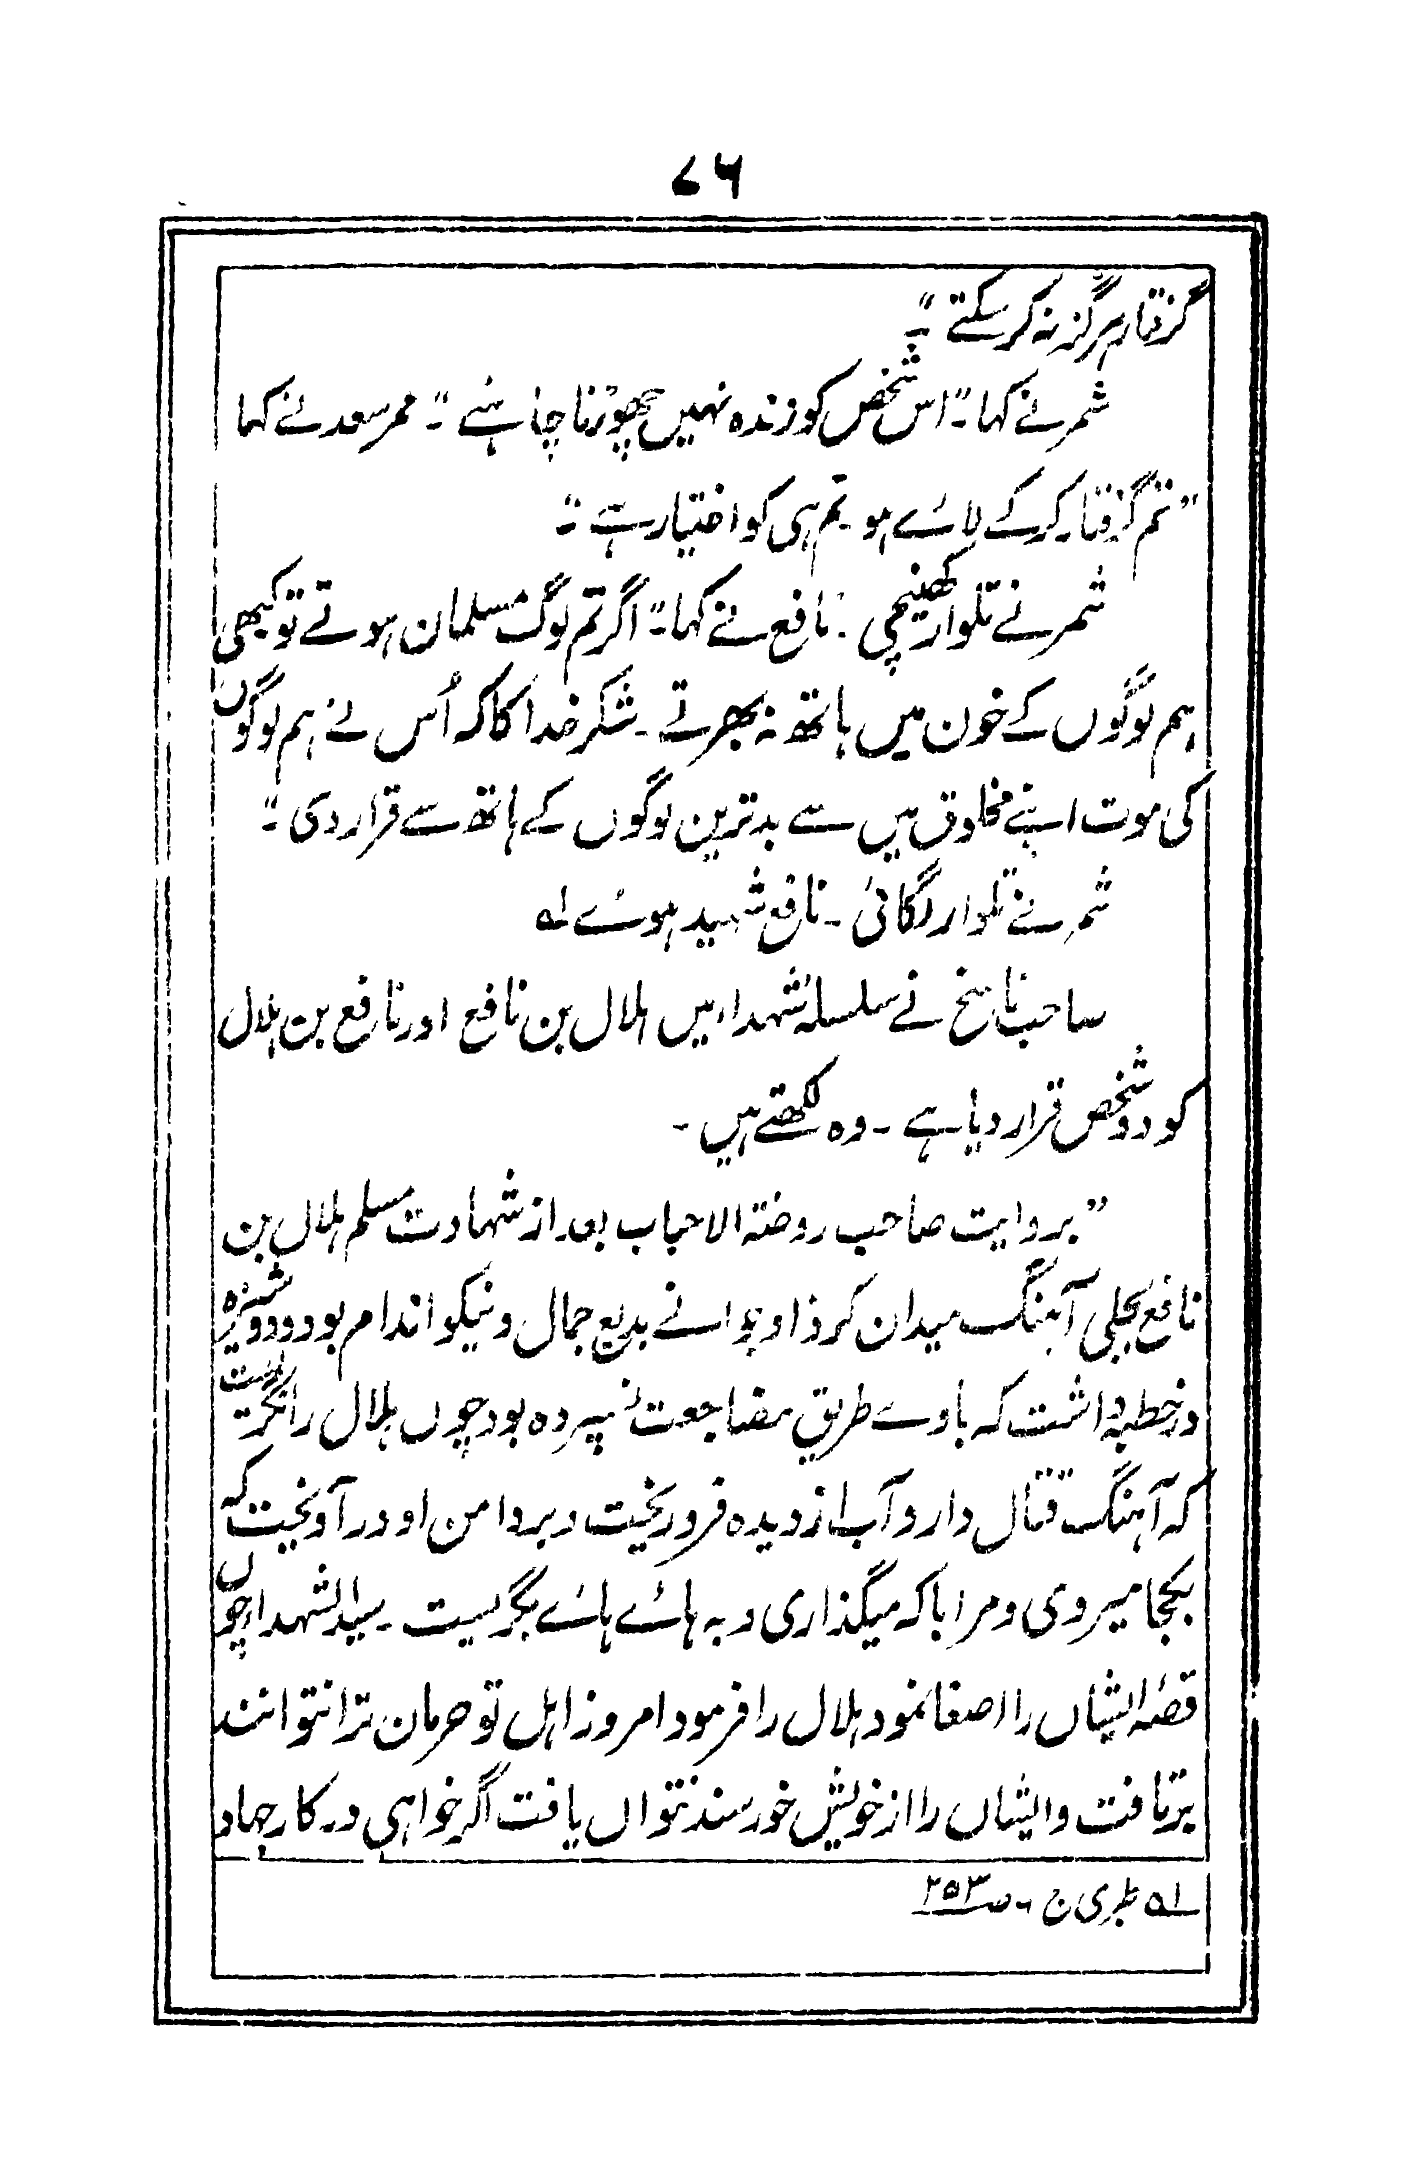 ۷۶
گرفتار ہرگز نہ کر سکتے "۔
شمر نے کہا۔" اس شخص کو زندہ نہیں چھوڑنا چاہئے "۔ عمر سعد نے کہا
" تم گرفتار کرکے لائے ہو۔ تم ہی کو اختیار ہے "۔
شمر نے تلوار کھینچی۔ نافع نے کہا۔" اگر تم لوگ مسلمان ہوتے تو کبھی
ہم لوگوں کے خون میں ہاتھ نہ بھرتے۔ شکر خدا کا کہ اُس نے ہم لوگوں
کی موت اپنے مخلوق میں سے بدترین لوگوں کے ہاتھ سے قرار دی "۔
شمر نے تلوار لگائی۔ نافع شہید ہوئے ۱ه
صاحب ناسخ نے سلسلۂ شہداء میں ہلال بن نافع اور نافع بن ہلال
کو دو شخص قرار دیا ہے۔ وہ لکھتے ہیں۔
" بروایت صاحب روضتہ الاحباب بعد از شہادت مسلم ہلال بن
نافع بجلی آہنگ میدان کرد او جوانے بدیع جمال و نیکو اندام بود و دوشیزہ
در خطبہ داشت کہ باوے طریق مضاجعت نسپردہ بود چوں ہلال را نگریست
کہ آہنگ قتال دارد آب از دیدہ فرو ریخت و بر دامن او در آویخت کہ
بکجا میروی و مرا با کہ میگذاری و بہ ہائے ہائے بگریست۔ سید الشہداء چوں
قصۂ ایشاں را اصغا نمود ہلال را فرمود امروز اہل تو حرمان ترا نتوانند
برتافت و ایشاں را از خویش خورسند نتواں یافت اگر خواہی در کار جہاد
۱ه طبری ج ۶ صـ ۲۵۳